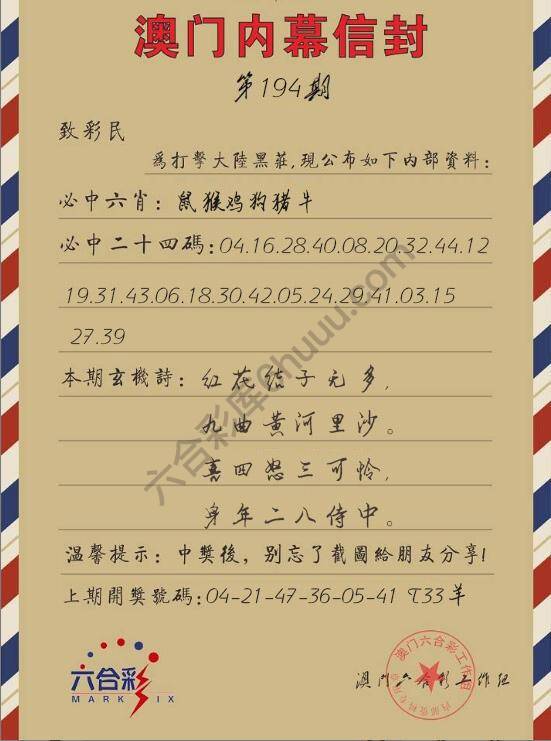 澳门内幕信封
第194期
致彩民
為打擊大陸黑莊,現公布如下內部資料:
必中六肖: 鼠猴鸡狗猪牛
必中二十四碼:04.16.28.40.08.20.32.44.12
19.31.43.06.18.30.42.05.24.29.41.03.15
27.39
本期玄機詩: 红花结子无多,
九曲黄河里沙。
喜四怒三可怜,
身年二八侍中。
溫馨提示: 中獎後, 別忘了截圖給朋友分享!
上期開獎號碼:04-21-47-36-05-41 T33羊
六合彩
MARK SIX
澳门六合彩工作组
澳门六合彩工作组
六合彩库@huuu.com